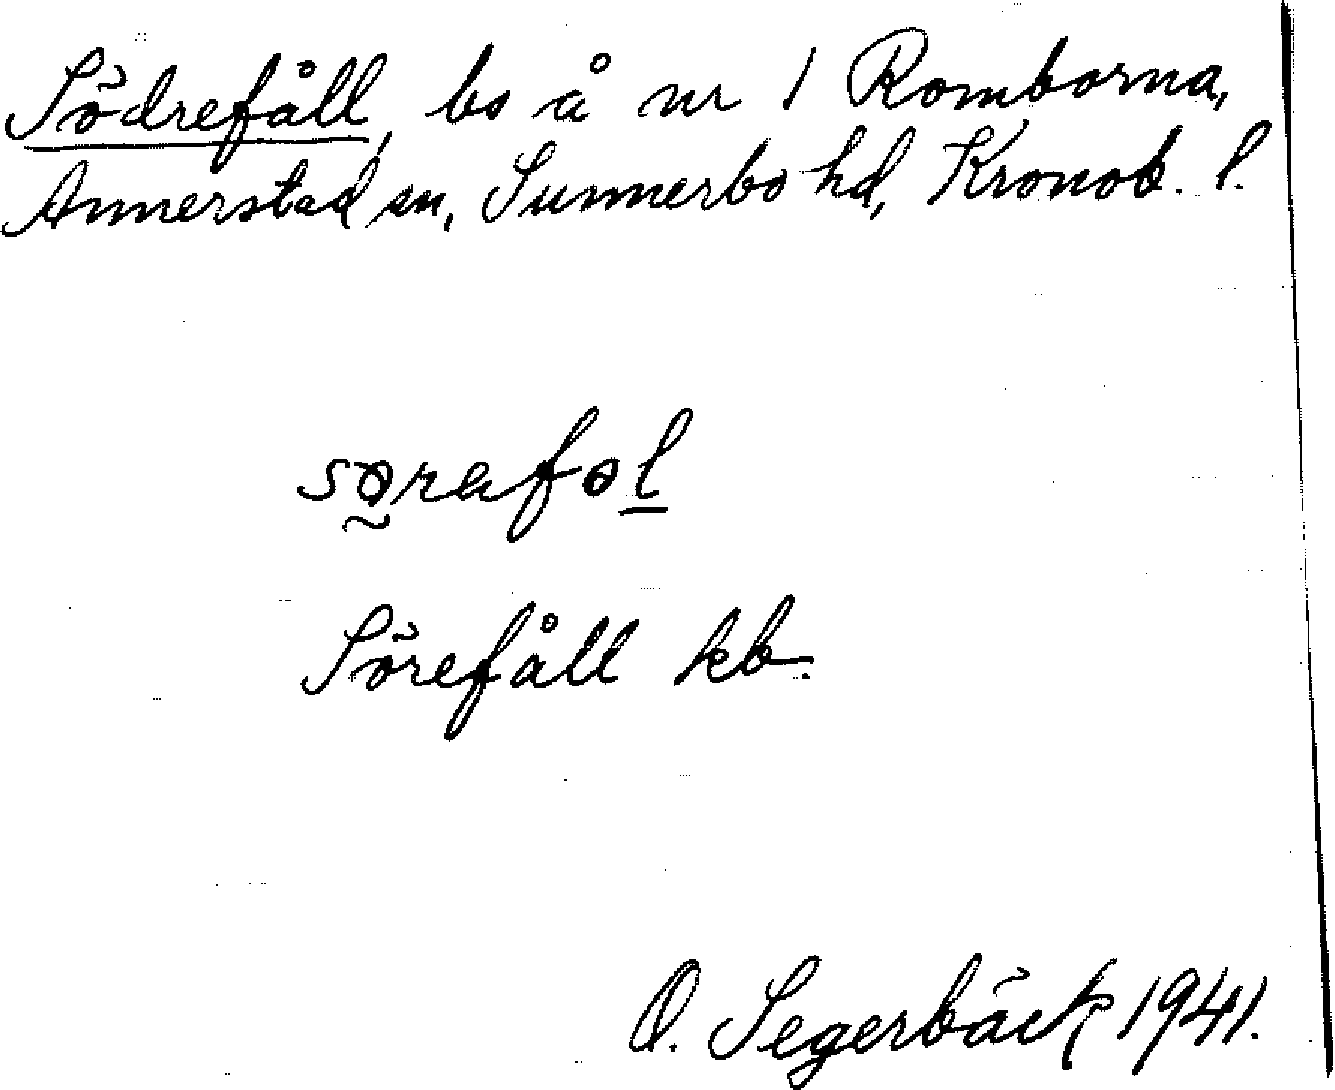 Södrefåll, bs å nr 1 Romborna,
Annerstad sn, Sunnerbo hd, Kronob. l.
Sörefåll kb.
O. Segerbäck 1941.